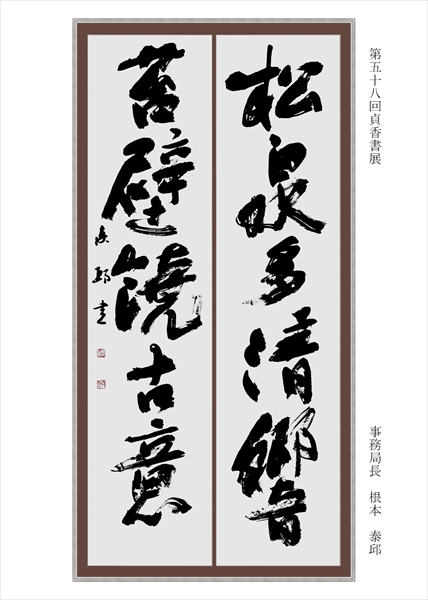 第五十八回貞香書展
松泉多清響
苔壁饒古意
泰邱書
事務局長 根本 泰邱